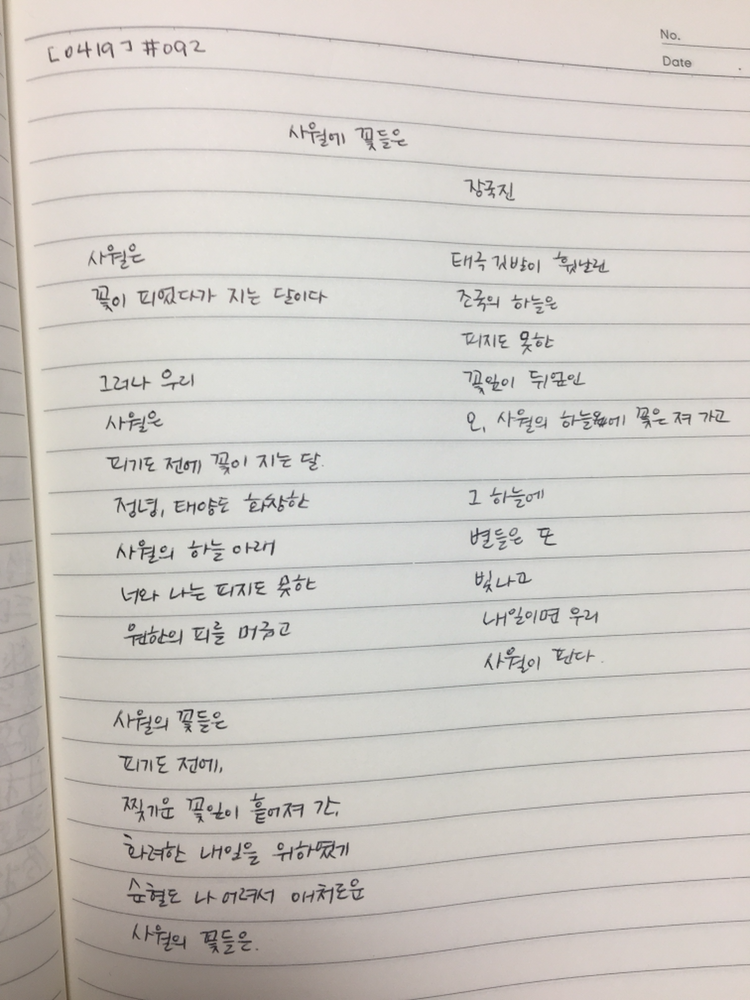 [0419] #092
No.
Date
사월에 꽃들은
장국진
사월은
꽃이 피었다가 지는 달이다
그러나 우리
사월은
피기도 전에 꽃이 지는 달.
정녕, 태양도 화창한
사월의 하늘 아래
너와 나는 피지도 못한
원한의 피를 머금고
사월의 꽃들은
피기도 전에,
찢겨운 꽃잎이 흩어져 간,
화려한 내일을 위하였기
순혈도 나 어려서 애처로운
사월의 꽃들은.
태극 깃발이 휘날린
조국의 하늘은
피지도 못한
꽃잎이 뒤엎인
오, 사월의 하늘에 꽃은 져 가고
그 하늘에
별들은 또
빛나고
내일이면 우리
사월이 핀다.